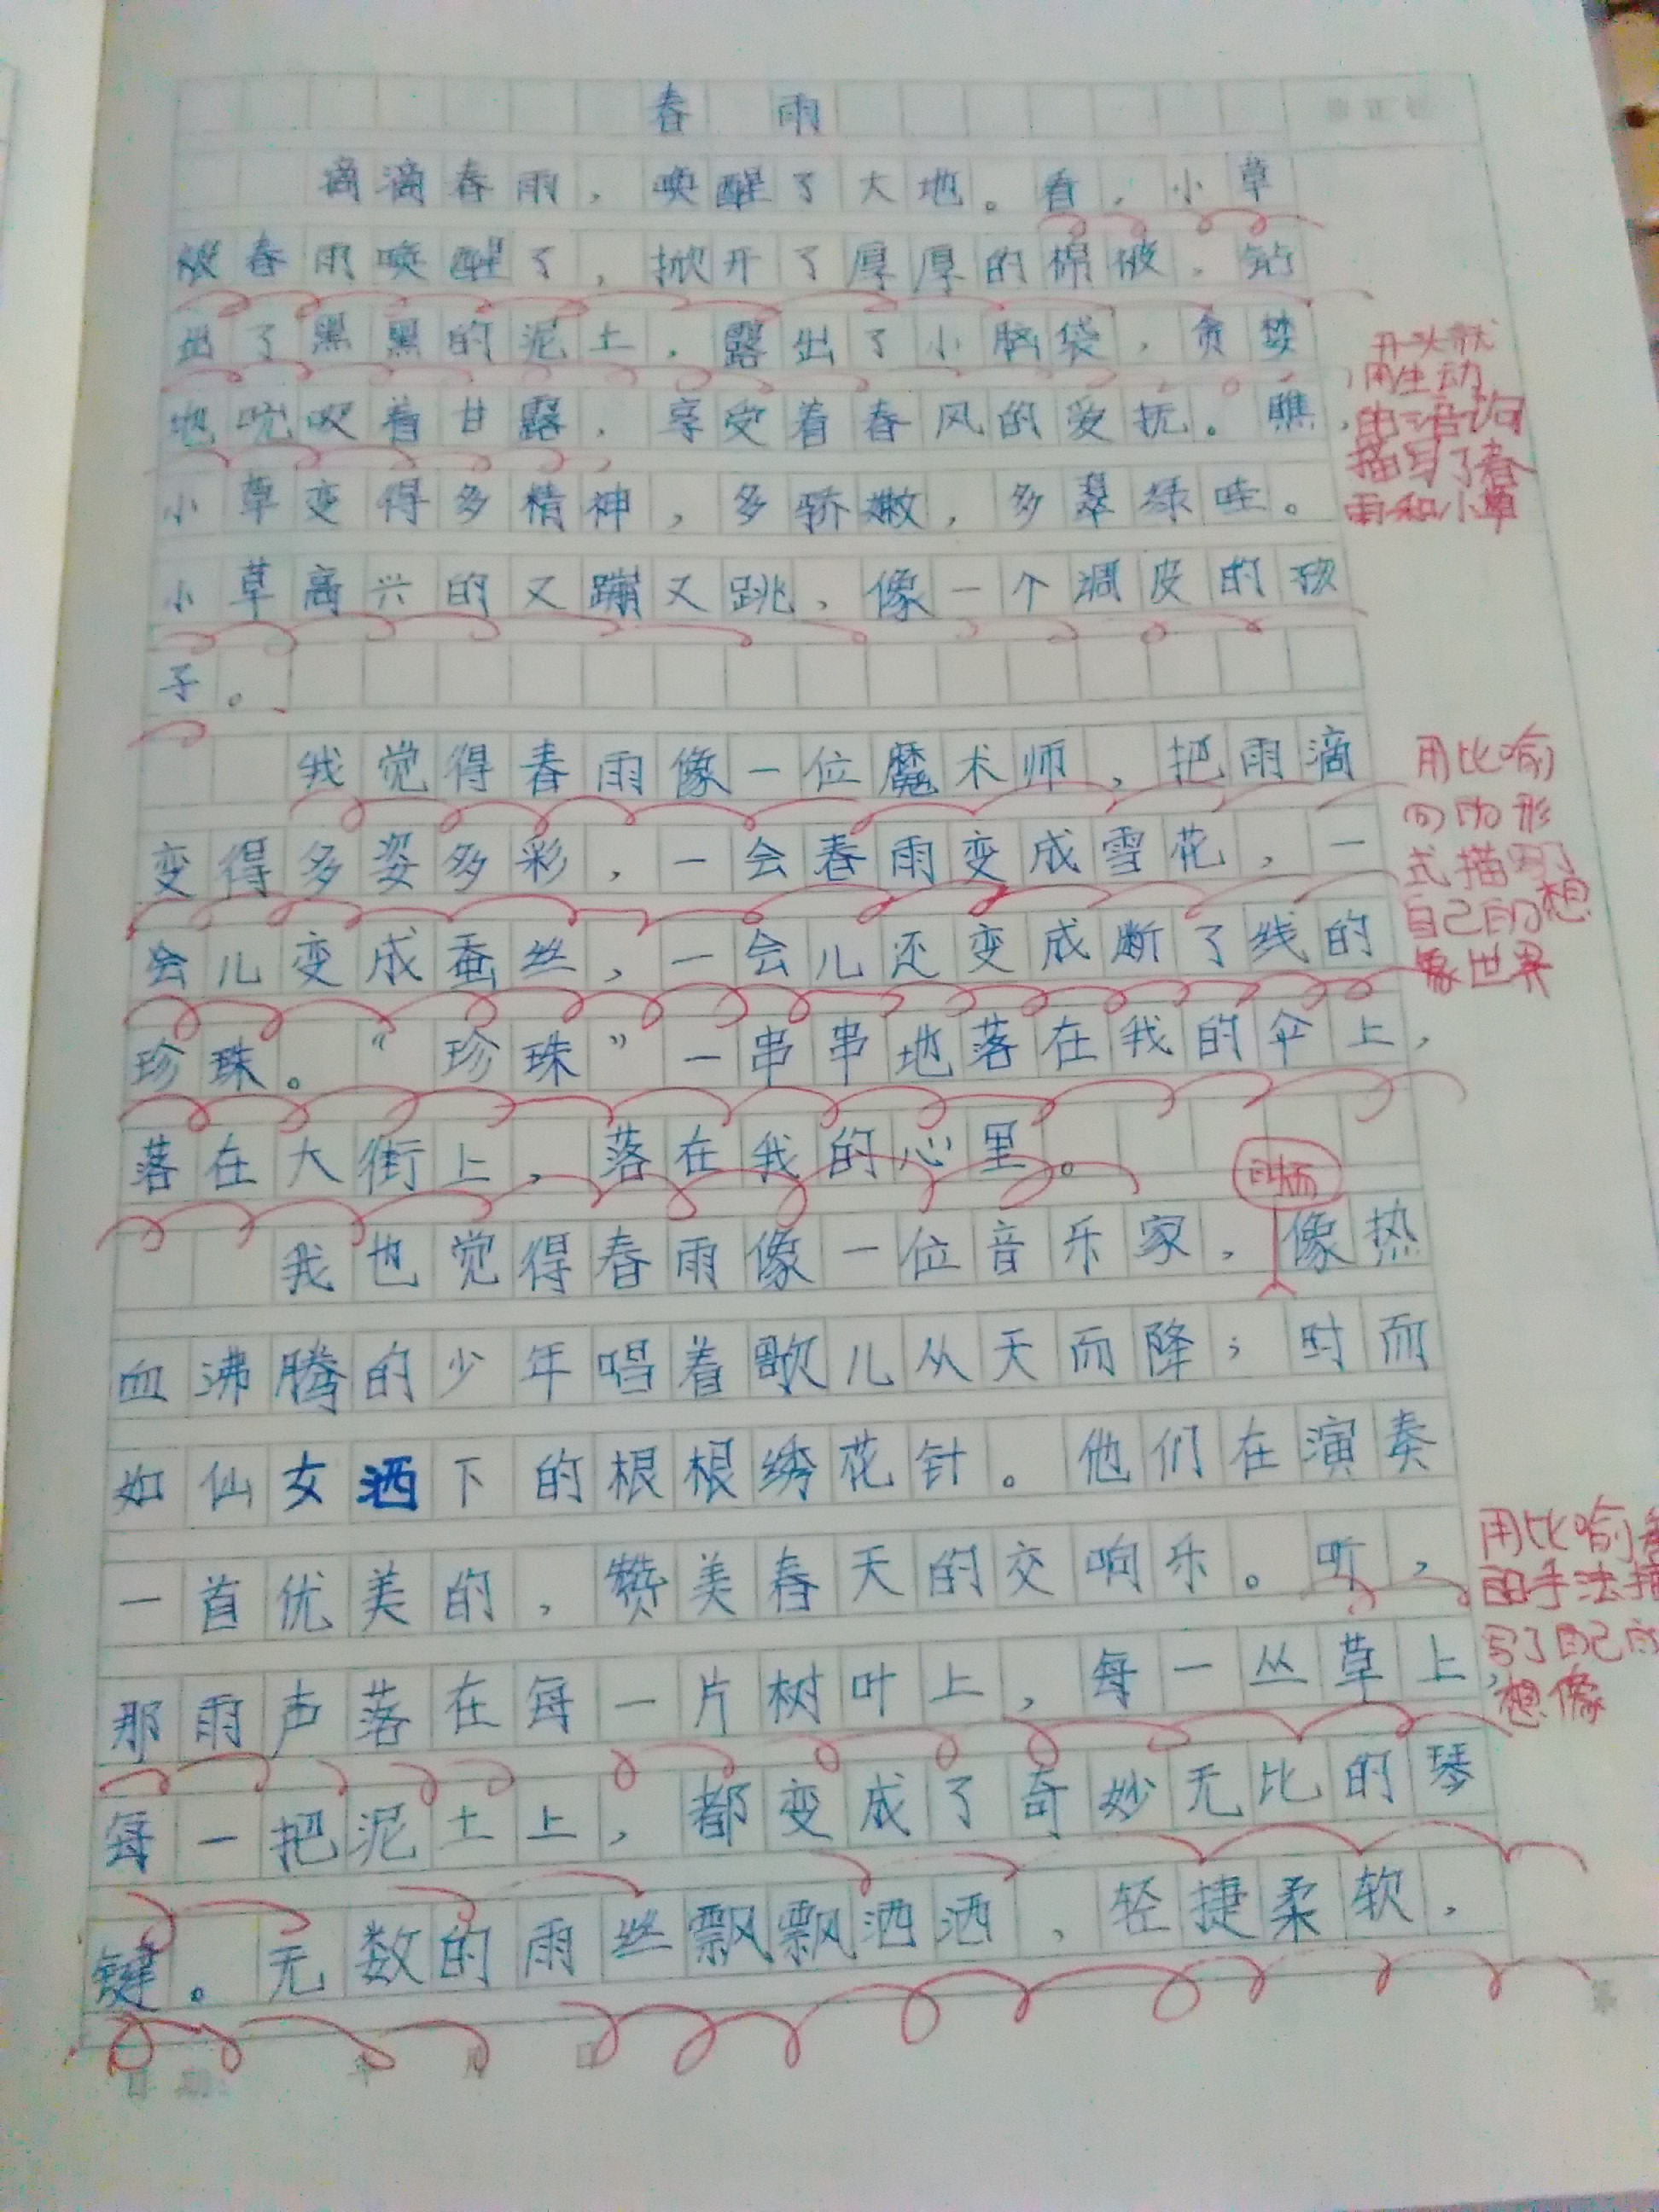 春 雨
滴滴春雨,唤醒了大地。看,小草
被春雨唤醒了,掀开了厚厚的棉被,钻
出了黑黑的泥土,露出了小脑袋,贪婪
地吮吸着甘露,享受着春风的爱抚。瞧,
小草变得多精神,多骄嫩,多翠绿哇。
小草高兴的又蹦又跳,像一个调皮的孩
子。
开头就
用生动
的语句
描写了春
雨和小草
我觉得春雨像一位魔术师,把雨滴
变得多姿多彩,一会春雨变成雪花,一
会儿变成蚕丝,一会儿还变成断了线的
珍珠。“珍珠”一串串地落在我的伞上,
落在大街上,落在我的心里。
用比喻
句的形
式描写了
自己的想
象世界
我也觉得春雨像一位音乐家,像热
时而
血沸腾的少年唱着歌儿从天而降;时而
如仙女洒下的根根绣花针。他们在演奏
一首优美的,赞美春天的交响乐。听,
那雨声落在每一片树叶上,每一丛草上,
每一把泥土上,都变成了奇妙无比的琴
键。无数的雨丝飘飘洒洒,轻捷柔软,
用比喻
的手法描
写了自己的
想像
日期: 年 月 日